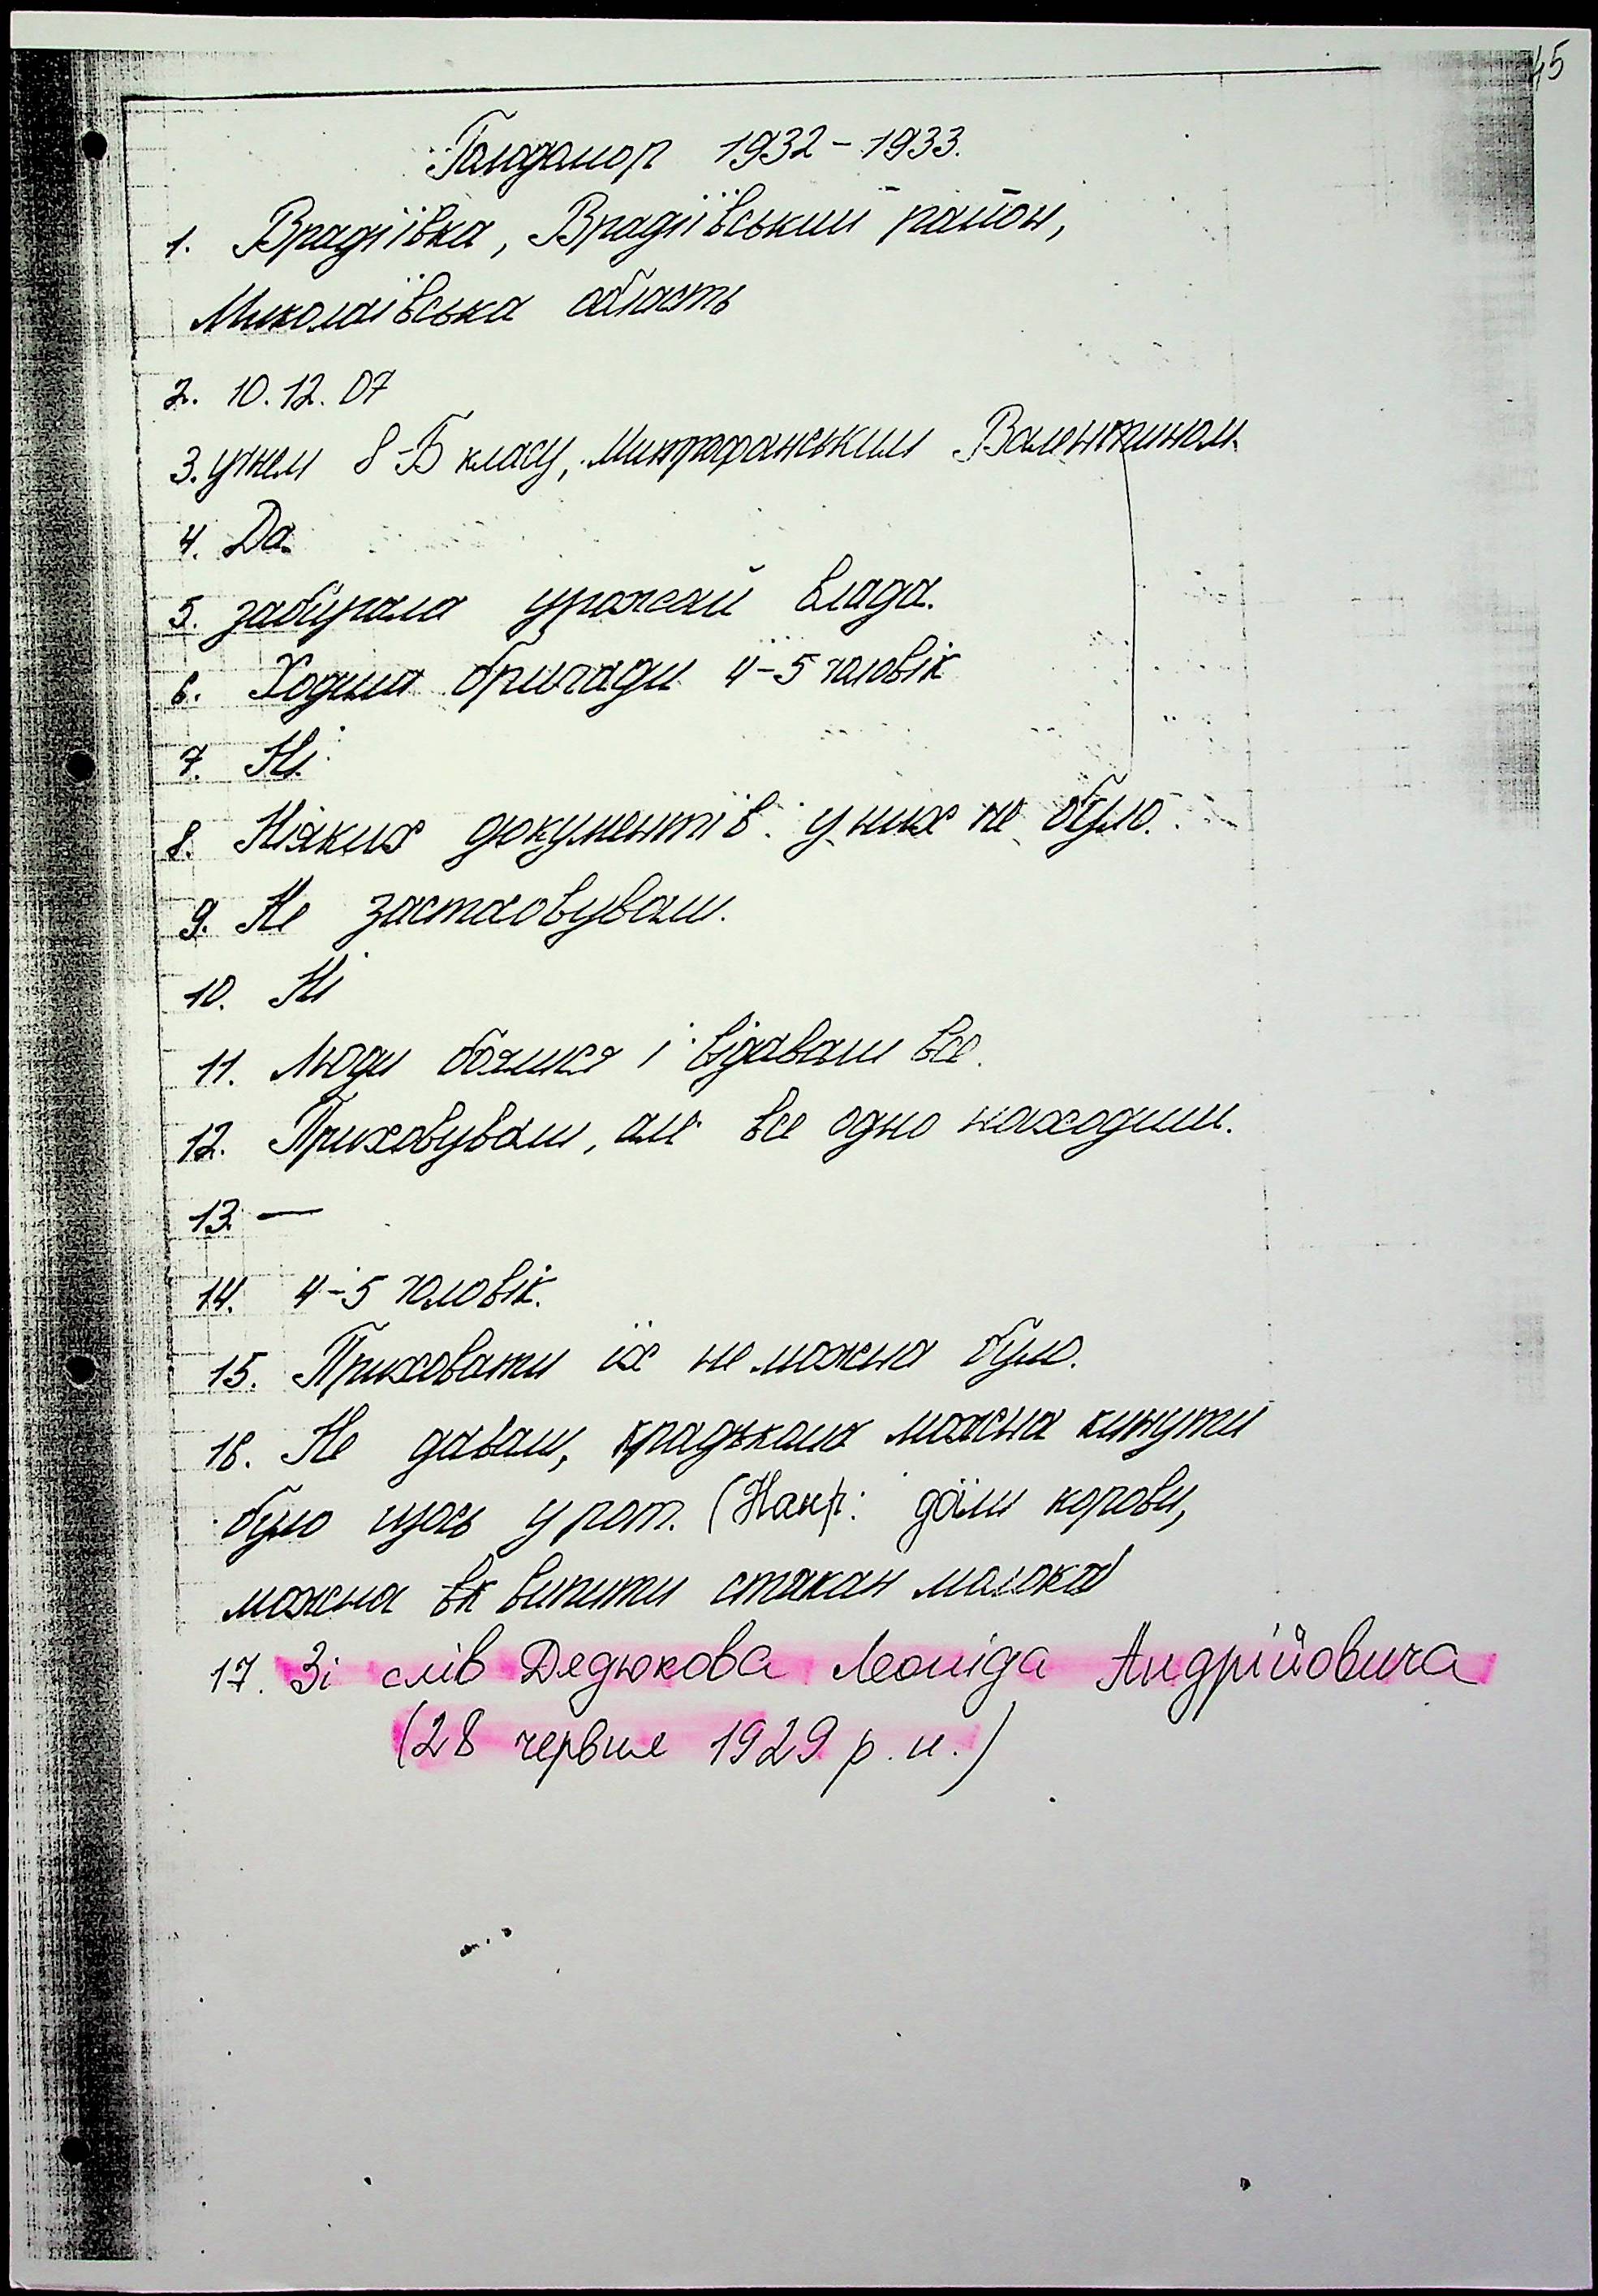 45
Голодомор 1932-1933.
1. Врадіївка, Врадіївський район,
Миколаївська область
2. 10.12.07
3. учнем 8-Б класу, Митрофанським Валентином
4. Да.
5. забирала урожай влада.
6. Ходила бригади 4-5 чоловік
7. Ні.
8. Ніяких документів у них не було.
9. Не застосовували.
10. Ні
11. Люди боялися і відавали все.
12. Приховували, але все одно находили.
13. —
14. 4-5 чоловік.
15. Приховати їх не можна було.
16. Не давали, крадькома можна кинути
було щось у рот. (Напр: доїли корови,
можна випити стакан молока)
17. Зі слів Дедюкова Леоніда Андрійовича
(28 червня 1929 р. н.)